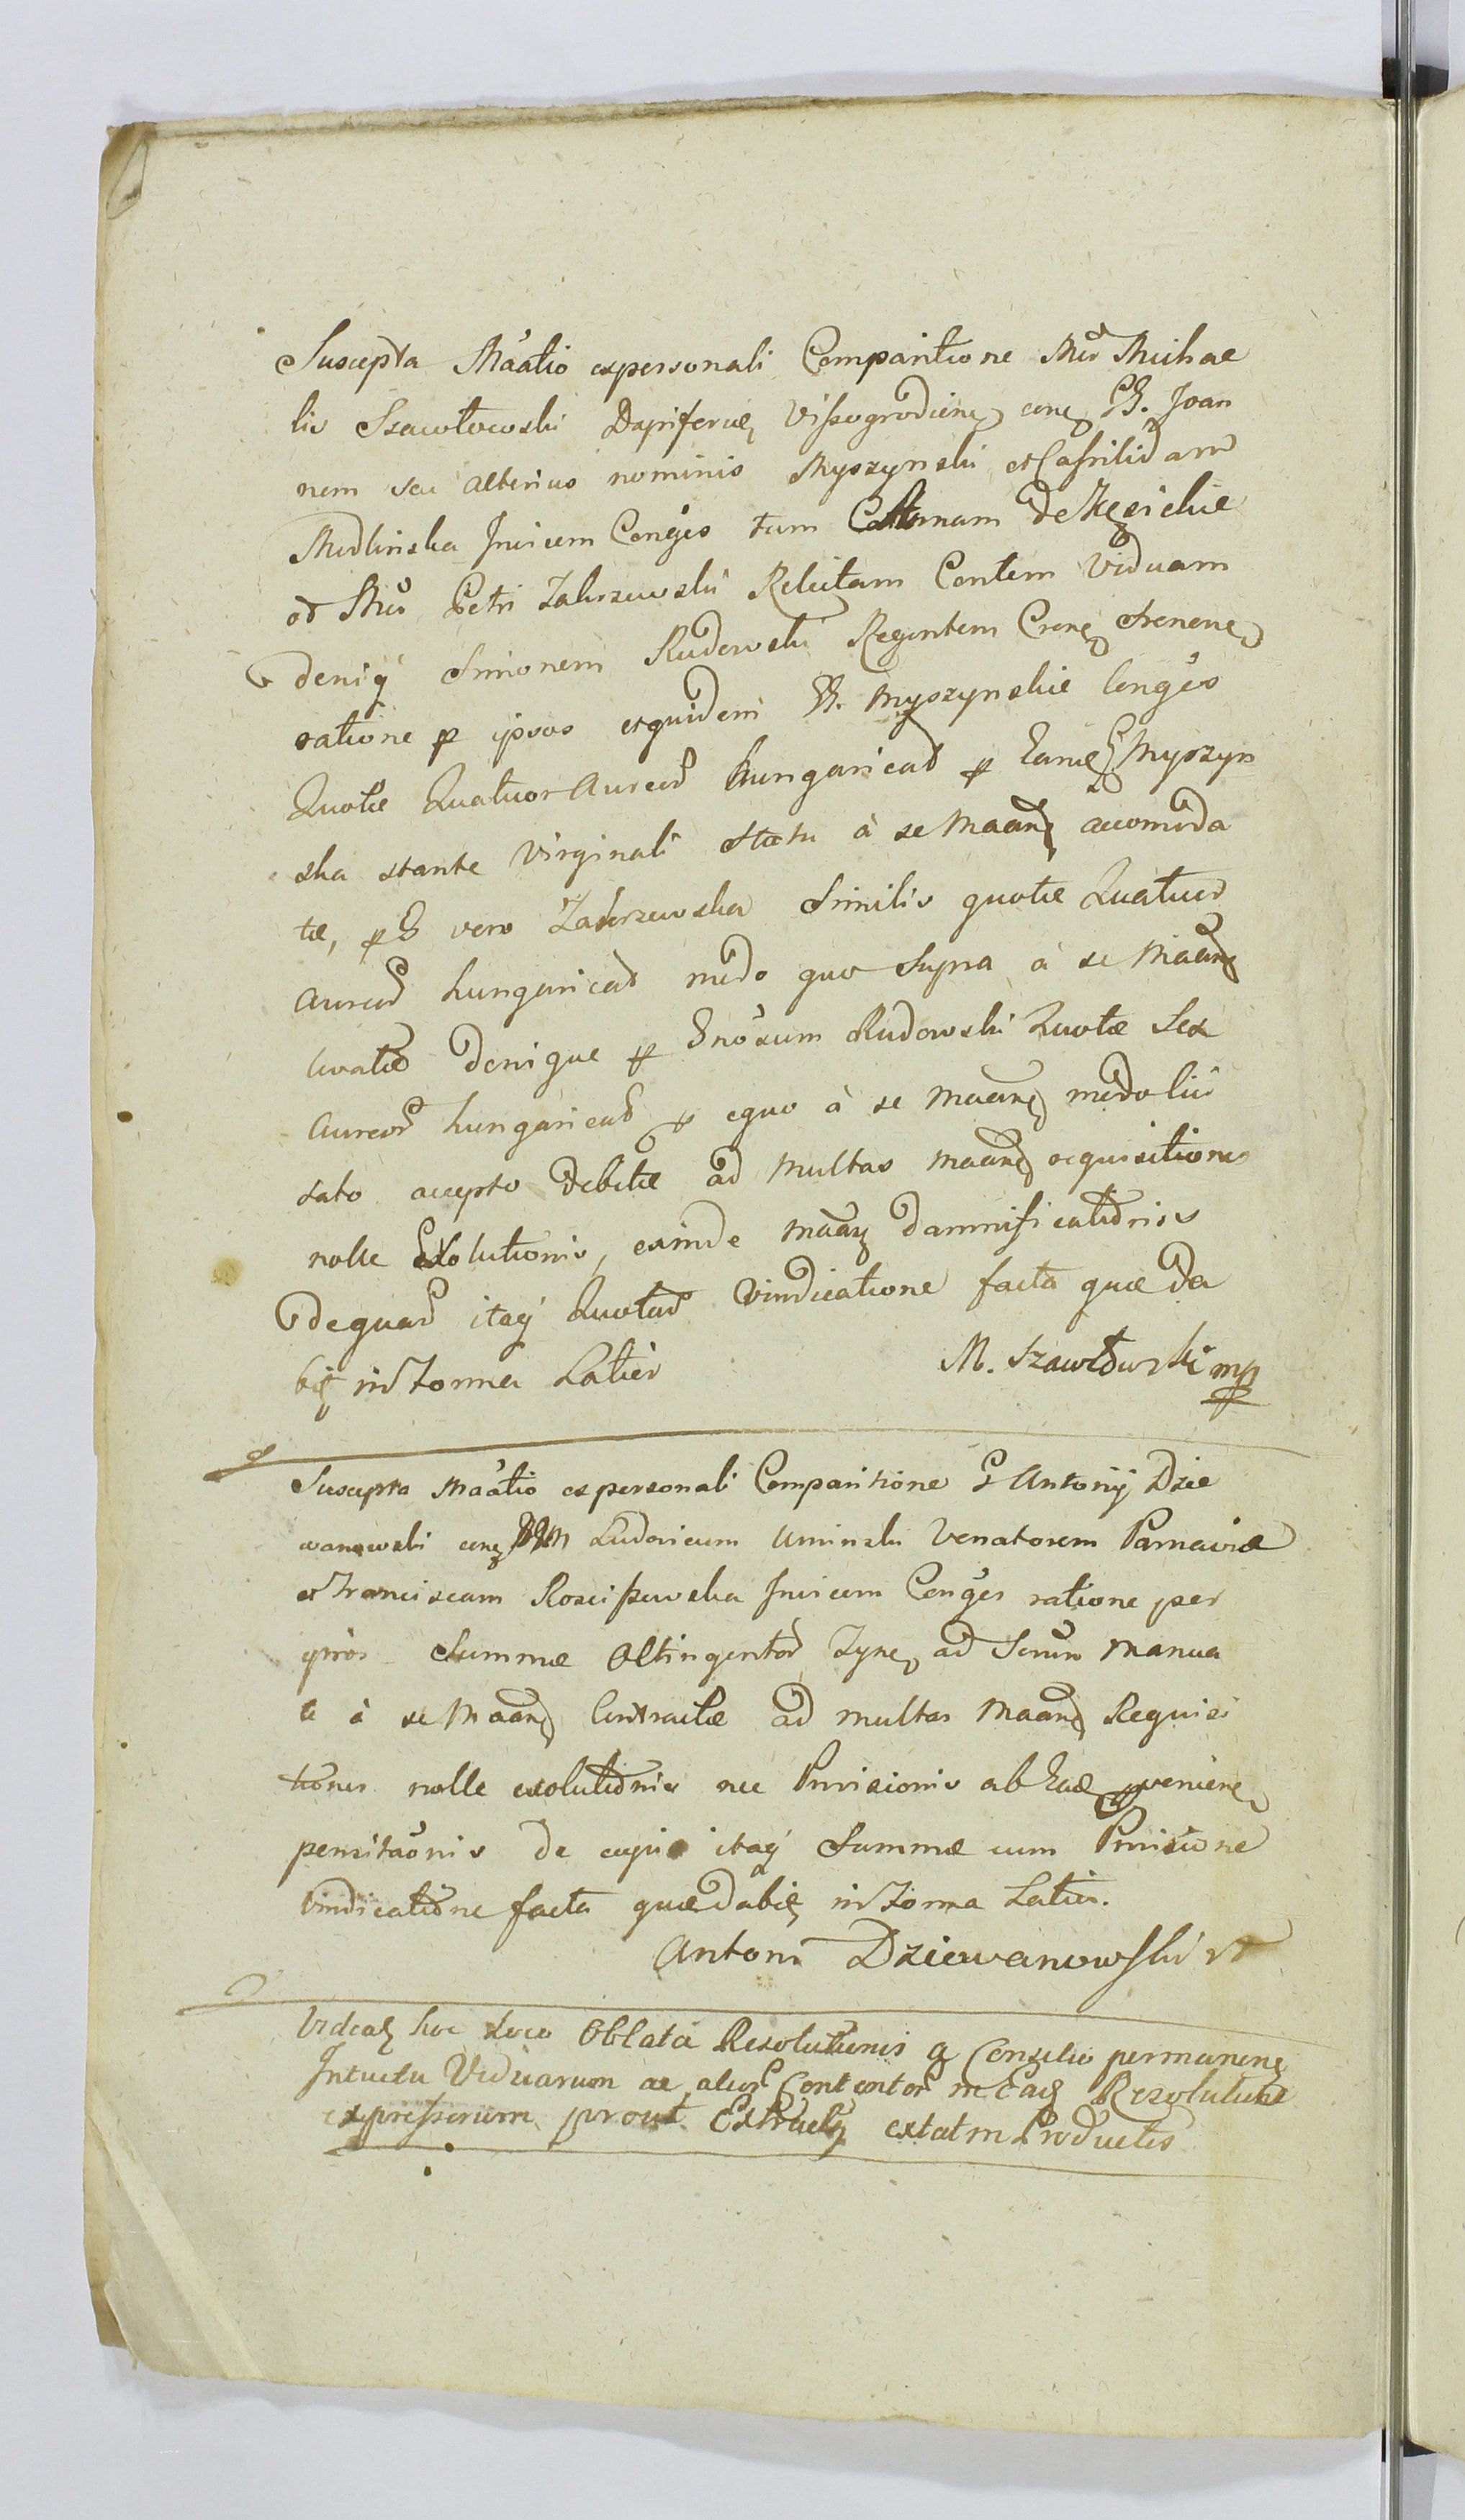 Suscepta Maãtio expersonali Comparitione Mci Michae
lis Szawłowski Dapiferidę Vissogrodien cong GG. Joan
nem seu alterius nominis Myszynski et
Modlinska Invicem Conges tum de Kęsickie
od Mci Petri Zakrzewski Relictam Contem Viduam
deniq Simonem Rudowski Regentem Crens Srenens
ratione p ipsos etquidem GG. Myszynskie Conges
Quotæ Quatuor Aureor hungaricał p Eand G Myszyn
ska stante Virginali statu à se Maand accomoda
tæ, p G vero Zakrzewska Similis quotæ Quatuor
aureor hungaricał modo quo Supra à se Maand
levatæ denique p Gnosum Rudowski Quotæ Sex
Aureor hungaricał p equo à se Maand modo lici
tato accepto debitæ ad multas Maand requisitiones
nolle Exolutionis, exinde Maan damnificationis
dequar itaq Quotar Vindicatione facta quæ da
bit in Forma Latior
M. Szawłowski mp
Suscepta Maãtio expersonali Comparitione G Antonij Dzie
wanowski cong Ludovicum Uminski Venatorem Parnaviæ
et Franciscam Rosciszewska Invicem Conges ratione per
ipsos Summæ Octingentor Zyne ad Scrum Manua
le à se Maand Contractæ ad multas Maand Requisi
tiones nolle exolutionis nec Provisionis ab Ead pveniene
pensitaõnis de cujus itaq Summæ cum Provisione
Vindicatione facta quæ dabit in Forma Latior.
Antoni Dziewanowski
Videat hoc Loco Oblata Resolutionis a Consilio permanene
Intuitu Viduarum ac alior Contentor in Ead Resolutione
expressorum prout Extractus extat in Productis